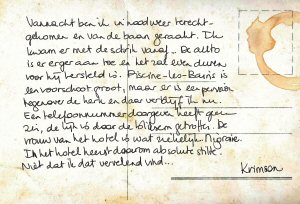 Vannacht ben ik in noodweer terecht-
gekomen en van de baan geraakt. Ik
kwam er met de schrik vanaf... De auto
is er erger aan toe en het zal even duren
voor hij hersteld is. Piscine-les-Bains is
een voorschoot groot, maar er is een pension
tegenover de kerk en daar verblijf ik nu.
Een telefoonnummer doorgeven heeft geen
zin, de lijn is door de bliksem getroffen. De
vrouw van het hotel is wat ziekelijk. Migraine.
In het hotel heerst daarom absolute stilte.
Niet dat ik dat vervelend vind...
Krimson